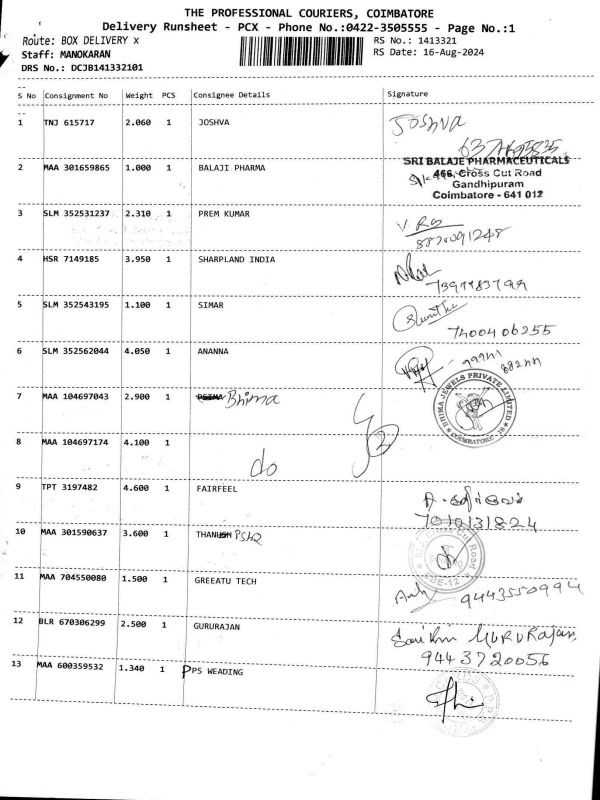 THE PROFESSIONAL COURIERS, COIMBATORE
Delivery Runsheet - PCX - Phone No.:0422-3505555 - Page No.:1
Route: BOX DELIVERY x
RS No.: 1413321
Staff: MANOKARAN
RS Date: 16-Aug-2024
DRS No.: DCJB141332101
S No Consignment No Weight PCS Consignee Details Signature
1 TNJ 615717 2.060 1 JOSHVA Joshva
2 MAA 301659865 1.000 1 BALAJI PHARMA
SRI BALAJE PHARMACEUTICALS
466, Cross Cut Road
Gandhipuram
Coimbatore - 641 012
3 SLM 352531237 2.310 1 PREM KUMAR
8870091248
4 HSR 7149185 3.950 1 SHARPLAND INDIA
5 SLM 352543195 1.100 1 SIMAR
7400406255
6 SLM 352562044 4.050 1 ANANNA
7 MAA 104697043 2.900 1 Bhima
BHIMA JEWELS PRIVATE LIMITED
COIMBATORE
8 MAA 104697174 4.100 1
do
2
9 TPT 3197482 4.600 1 FAIRFEEL
7010131824
10 MAA 301590637 3.600 1
Cross Cut Road
CBE-12
11 MAA 704550080 1.500 1 GREEATU TECH
9443550994
12 BLR 670306299 2.500 1 GURURAJAN GURURajan
9443720056
13 MAA 600359532 1.340 1 PPS WEADING